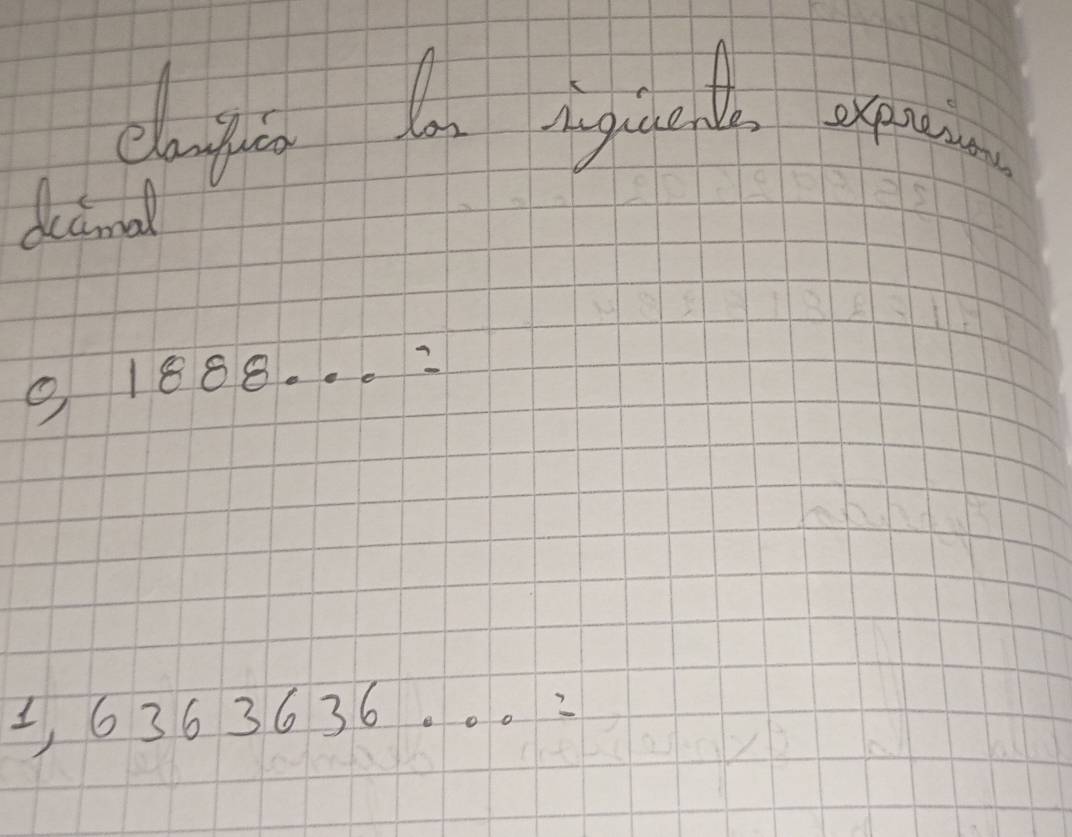 Clasifica las siguientes expresiones
decimal
0,1888... =
1,6363636.... =